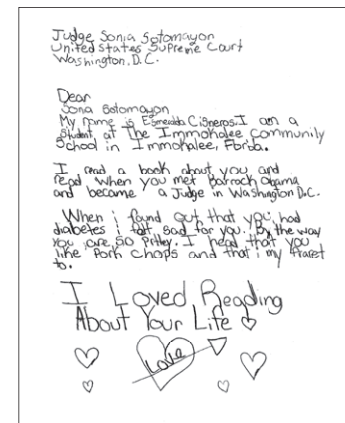 Judge Sonia Sotomayon
United States Supreme Court
Washington, D.C.
Dear
Sona Sotomayon
My name is Esmeralda Cisneros. I am a
Student at The Immokalee Community
School in Immokalee, Florida.
I read a book about you, and
read when you met barrock obama
and became a Judge in Washington D.C.
When i found out that you had
diabetes i felt sad for you. By the way
You are so Pritey. I head that you
like Pork chops and that i my
to.
I Loved Reading
About Your Life
Love